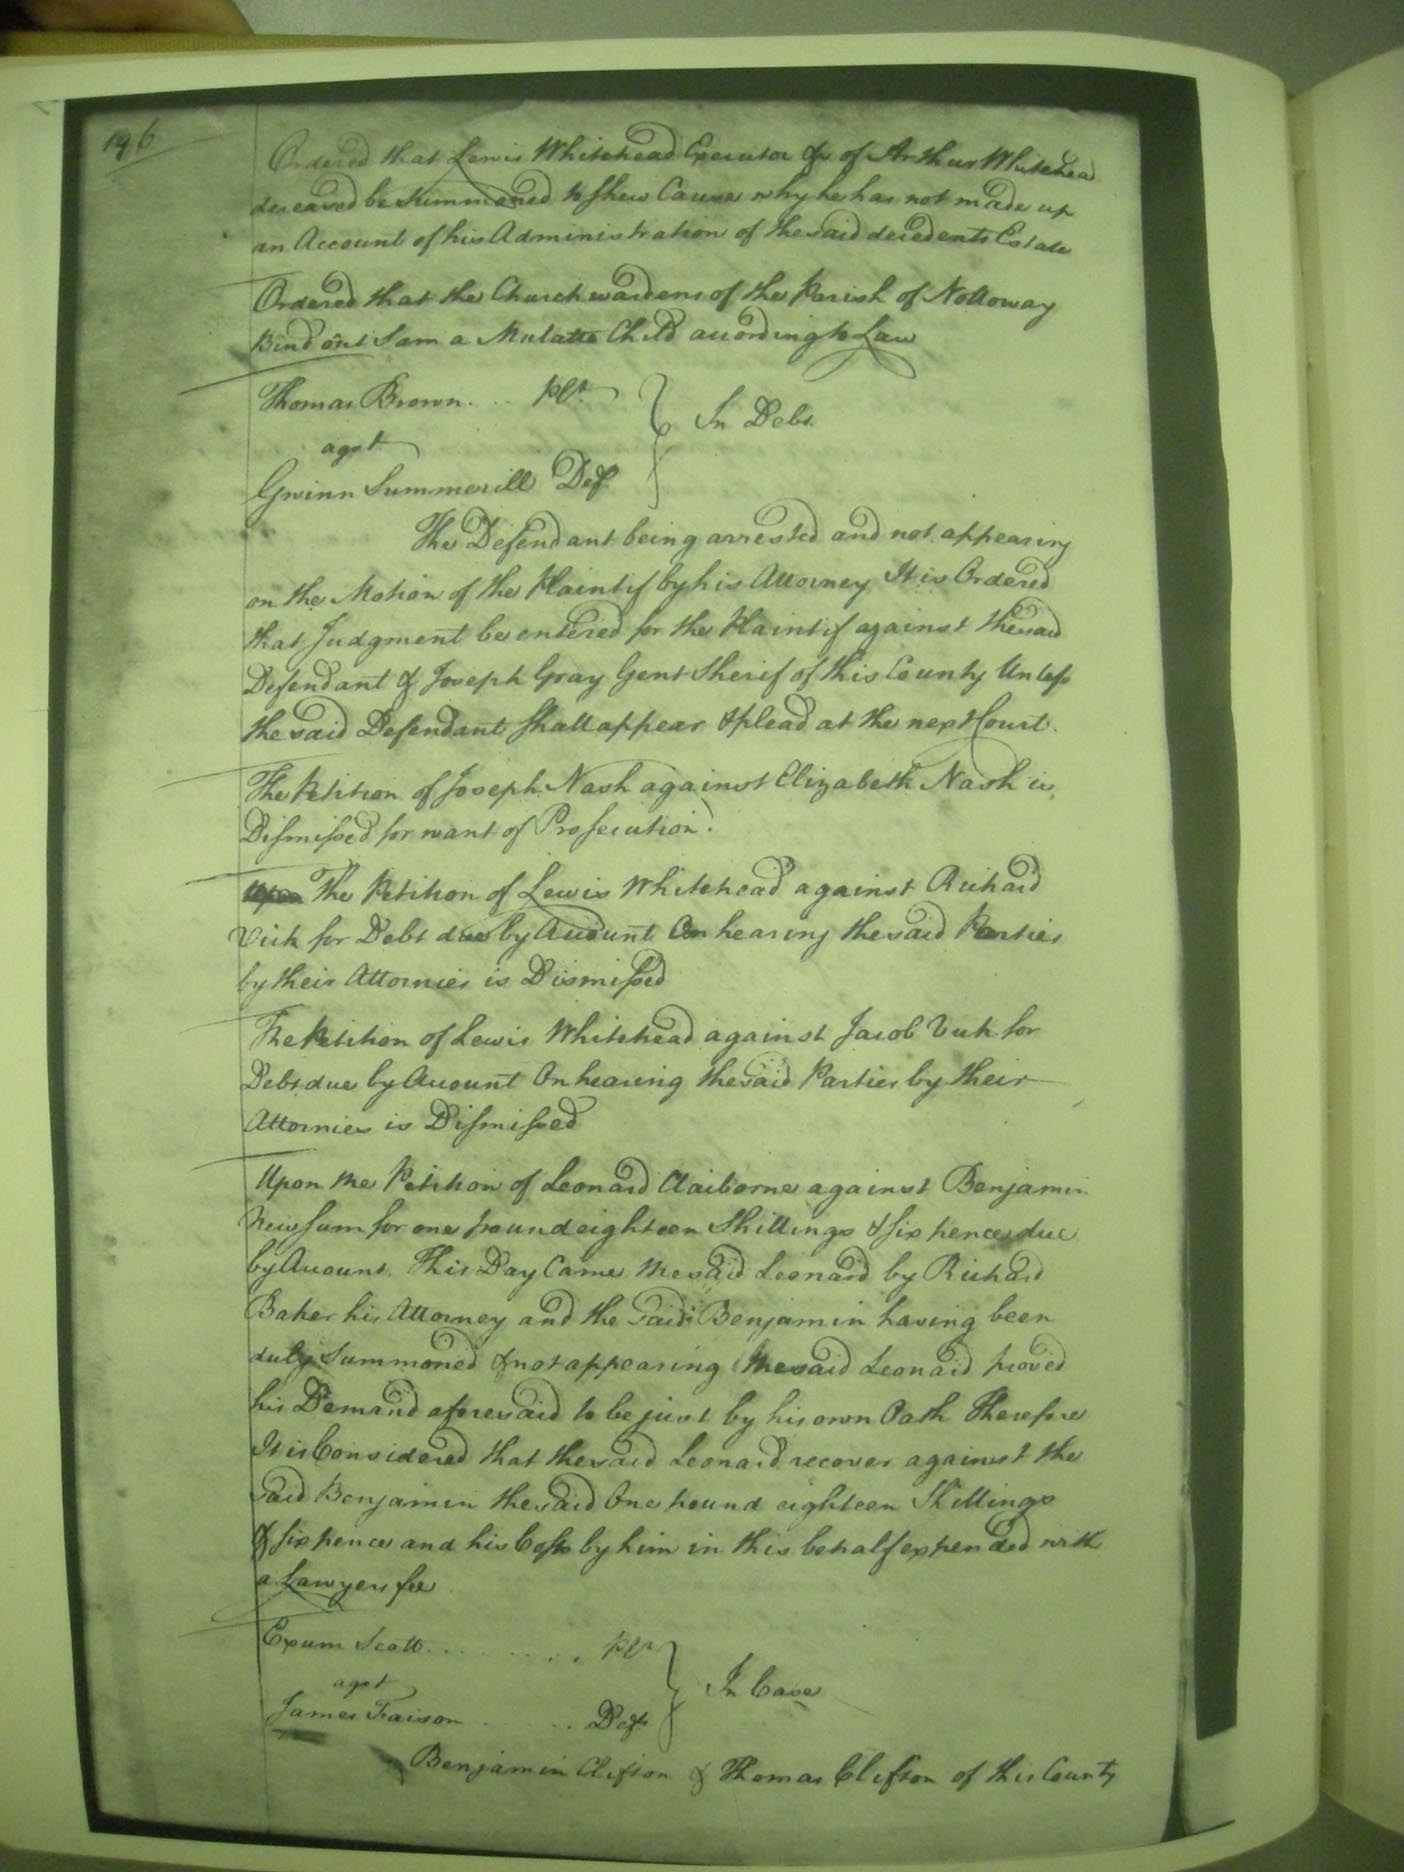 196
Ordered that Lewis Whitehead Executor &c of Arthur Whitehead
deceased be Summoned to shew Cause why he has not made up
an Account of his Administration of the said decedents Estate
Ordered that the Churchwardens of the Parish of Nottoway
Bind out Sam a Mulatto Child according to Law
Thomas Brown . . . Plt.
agst
In Debt.
Gwinn Summerill Deft
The Defendant being arrested and not appearing
on the Motion of the Plaintif by his Attorney It is Ordered
that Judgment be entered for the Plaintif against the said
Defendant & Joseph Gray Gent Sherif of this County Unless
the said Defendant shall appear & plead at the next Court.
The Petition of Joseph Nash against Elizabeth Nash is
Dismissed for want of Prosecution.
The Petition of Lewis Whitehead against Richard
Vick for Debt due by Account On hearing the said Parties
by their Attornies is Dismissed
The Petition of Lewis Whitehead against Jacob Vick for
Debt due by Account On hearing the said Parties by their
Attornies is Dismissed
Upon the Petition of Leonard Claiborne against Benjamin
Newsum for one pound eighteen Shillings & six pence due
by Account. This Day Came the said Leonard by Richard
Baker his Attorney and the said Benjamin having been
duly Summoned & not appearing the said Leonard proved
his Demand aforesaid to be just by his own Oath Therefore
It is Considered that the said Leonard recover against the
said Benjamin the said One pound eighteen Shillings
& six pence and his Costs by him in this behalf expended with
a Lawyers fee
Exum Scott . . . . . . . . . Plt
agst
In Case
James Faison . . . . . . Deft
Benjamin Clifton & Thomas Clifton of this County